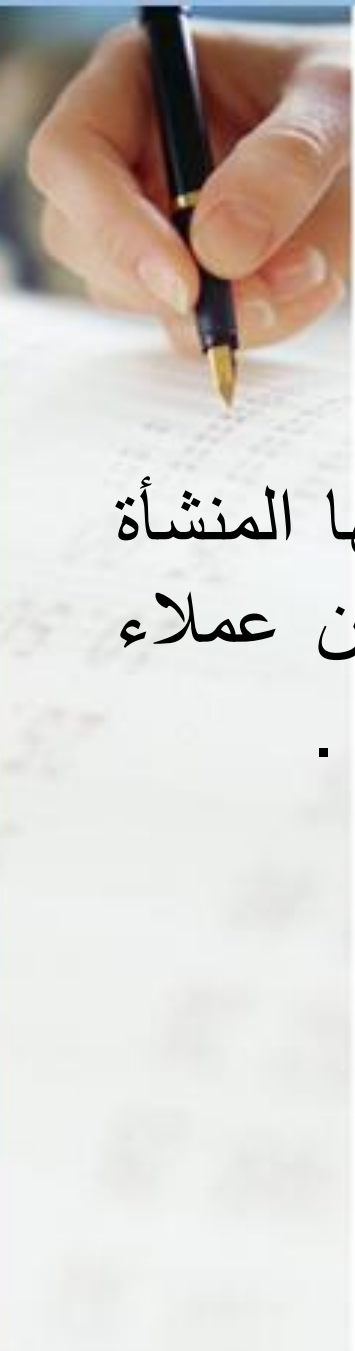 المنشأة
عملاء
.